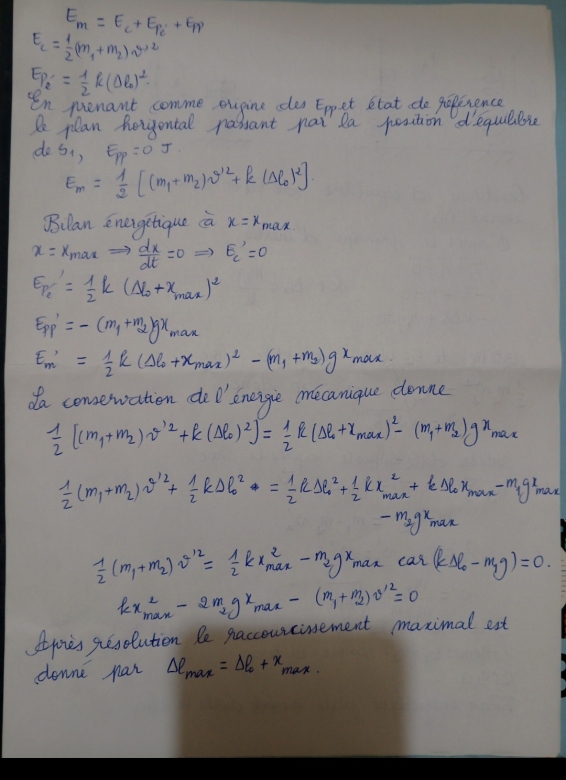 E_m = E_c + E_pé + E_pp
E_c = 1/2 (m₁+m₂) v'²
E_pé = 1/2 k(Δl₀)².
En prenant comme origine des Epp et état de référence
le plan horizontal passant par la position d'équilibre
de S₁, Epp = 0 J.
E_m = 1/2 [(m₁+m₂)v'² + k(Δl₀)²].
Bilan énergétique à x = x_max
x = x_max ⟹ dx/dt = 0 ⟹ E_c' = 0
E_pé' = 1/2 k (Δl₀ + x_max)²
E_pp' = - (m₁+m₂)g x_max
E_m' = 1/2 k (Δl₀ + x_max)² - (m₁+m₂) g x_max.
La conservation de l'énergie mécanique donne
1/2 [(m₁+m₂) v'² + k(Δl₀)²] = 1/2 k(Δl₀ + x_max)² - (m₁+m₂)g x_max
1/2 (m₁+m₂) v'² + 1/2 kΔl₀² = 1/2 kΔl₀² + 1/2 k x²_max + kΔl₀ x_max - m₁g x_max
- m₂g x_max
1/2 (m₁+m₂) v'² = 1/2 k x²_max - m₂g x_max car (kΔl₀ - m₁g) = 0.
k x²_max - 2m₂g x_max - (m₁+m₂) v'² = 0
Après résolution le raccourcissement maximal est
donné par Δl_max = Δl₀ + x_max.